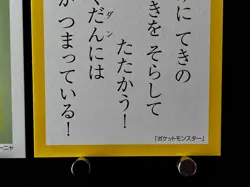 に てきの
きを そらして
たたかう!
くだんには
ダン
が つまっている!
「ポケットモンスター」
ーニャ